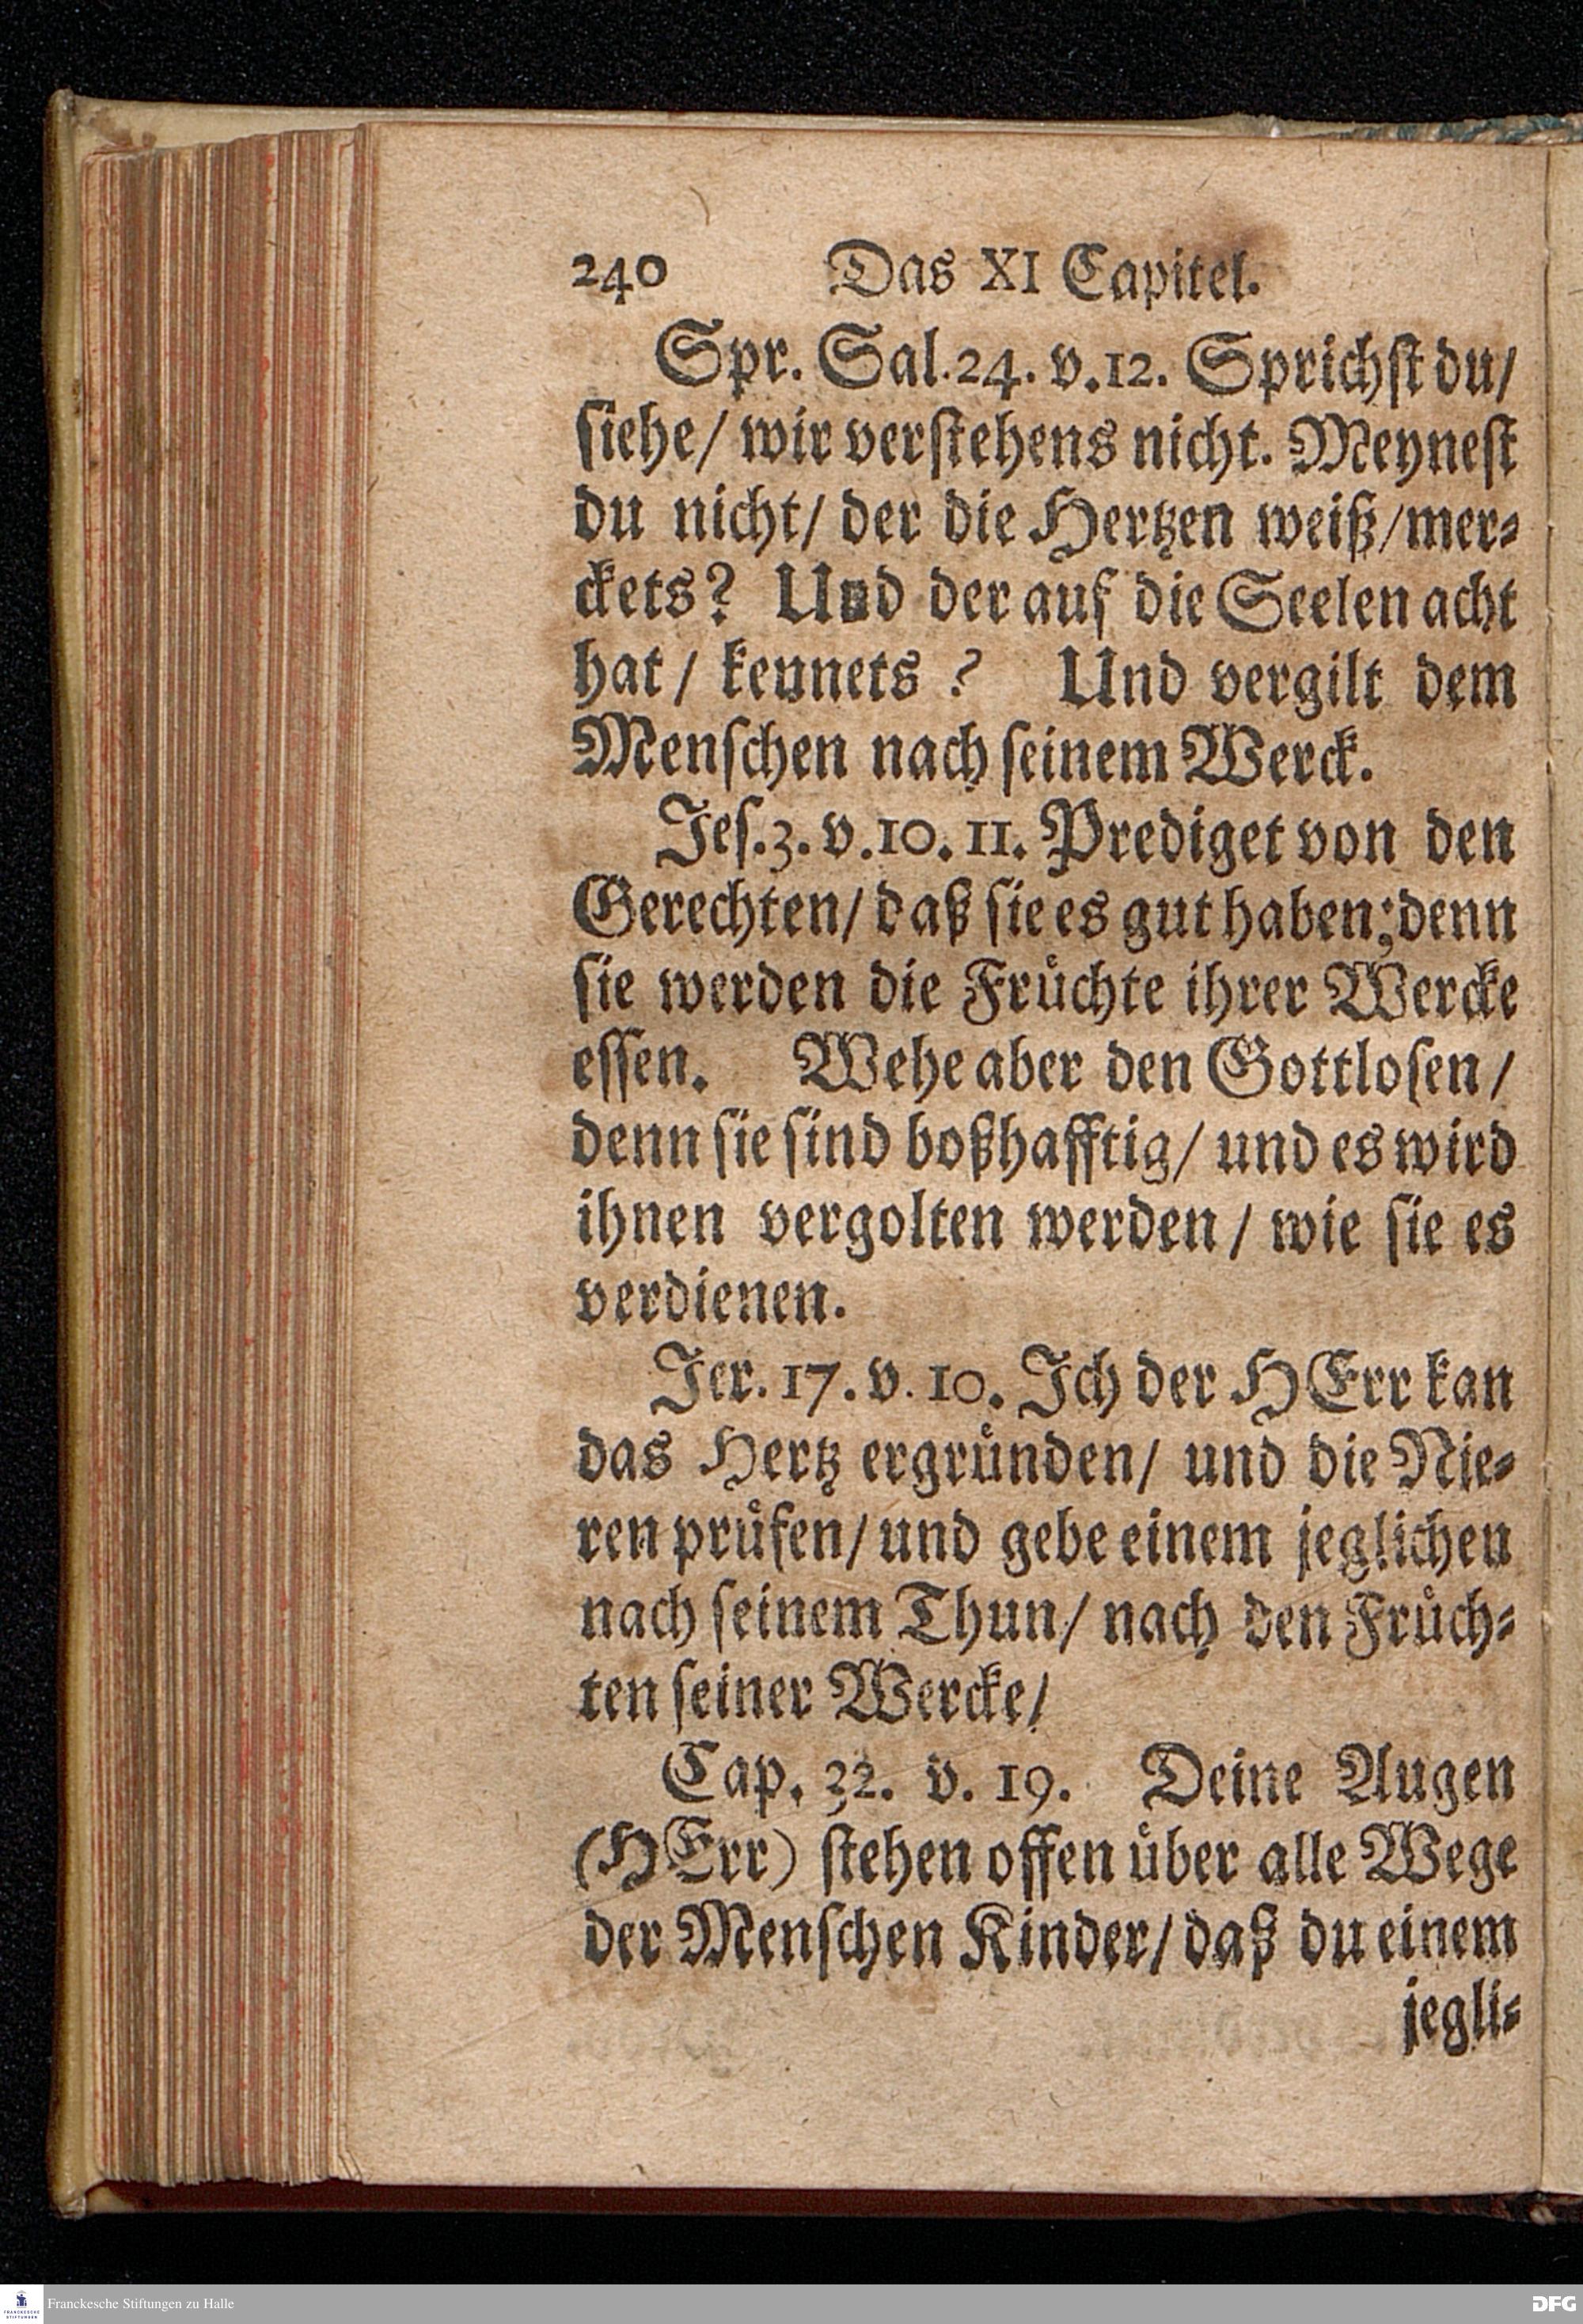 240 Das XI Capitel.
Spr. Sal. 24. v. 12. Sprichst du/
siehe/ wir verstehens nicht. Meynest
du nicht/ der die Hertzen weiß/ mer-
ckets? Und der auf die Seelen acht
hat/ keunets? Und vergilt dem
Menschen nach seinem Werck.
Jes. 3. v. 10. 11. Prediget von den
Gerechten/ daß sie es gut haben; denn
sie werden die Früchte ihrer Wercke
essen. Wehe aber den Gottlosen/
denn sie sind boßhafftig/ und es wird
ihnen vergolten werden/ wie sie es
verdienen.
Jer. 17. v. 10. Jch der HErr kan
das Hertz ergründen/ und die Nie-
ren prüfen/ und gebe einem jeglichen
nach seinem Thun/ nach den Früch-
ten seiner Wercke/
Cap. 32. v. 19. Deine Augen
(HErr) stehen offen über alle Wege
der Menschen Kinder/ daß du einem
jegli-
Franckesche Stiftungen zu Halle
FRANCKESCHE
STIFTUNGEN
DFG